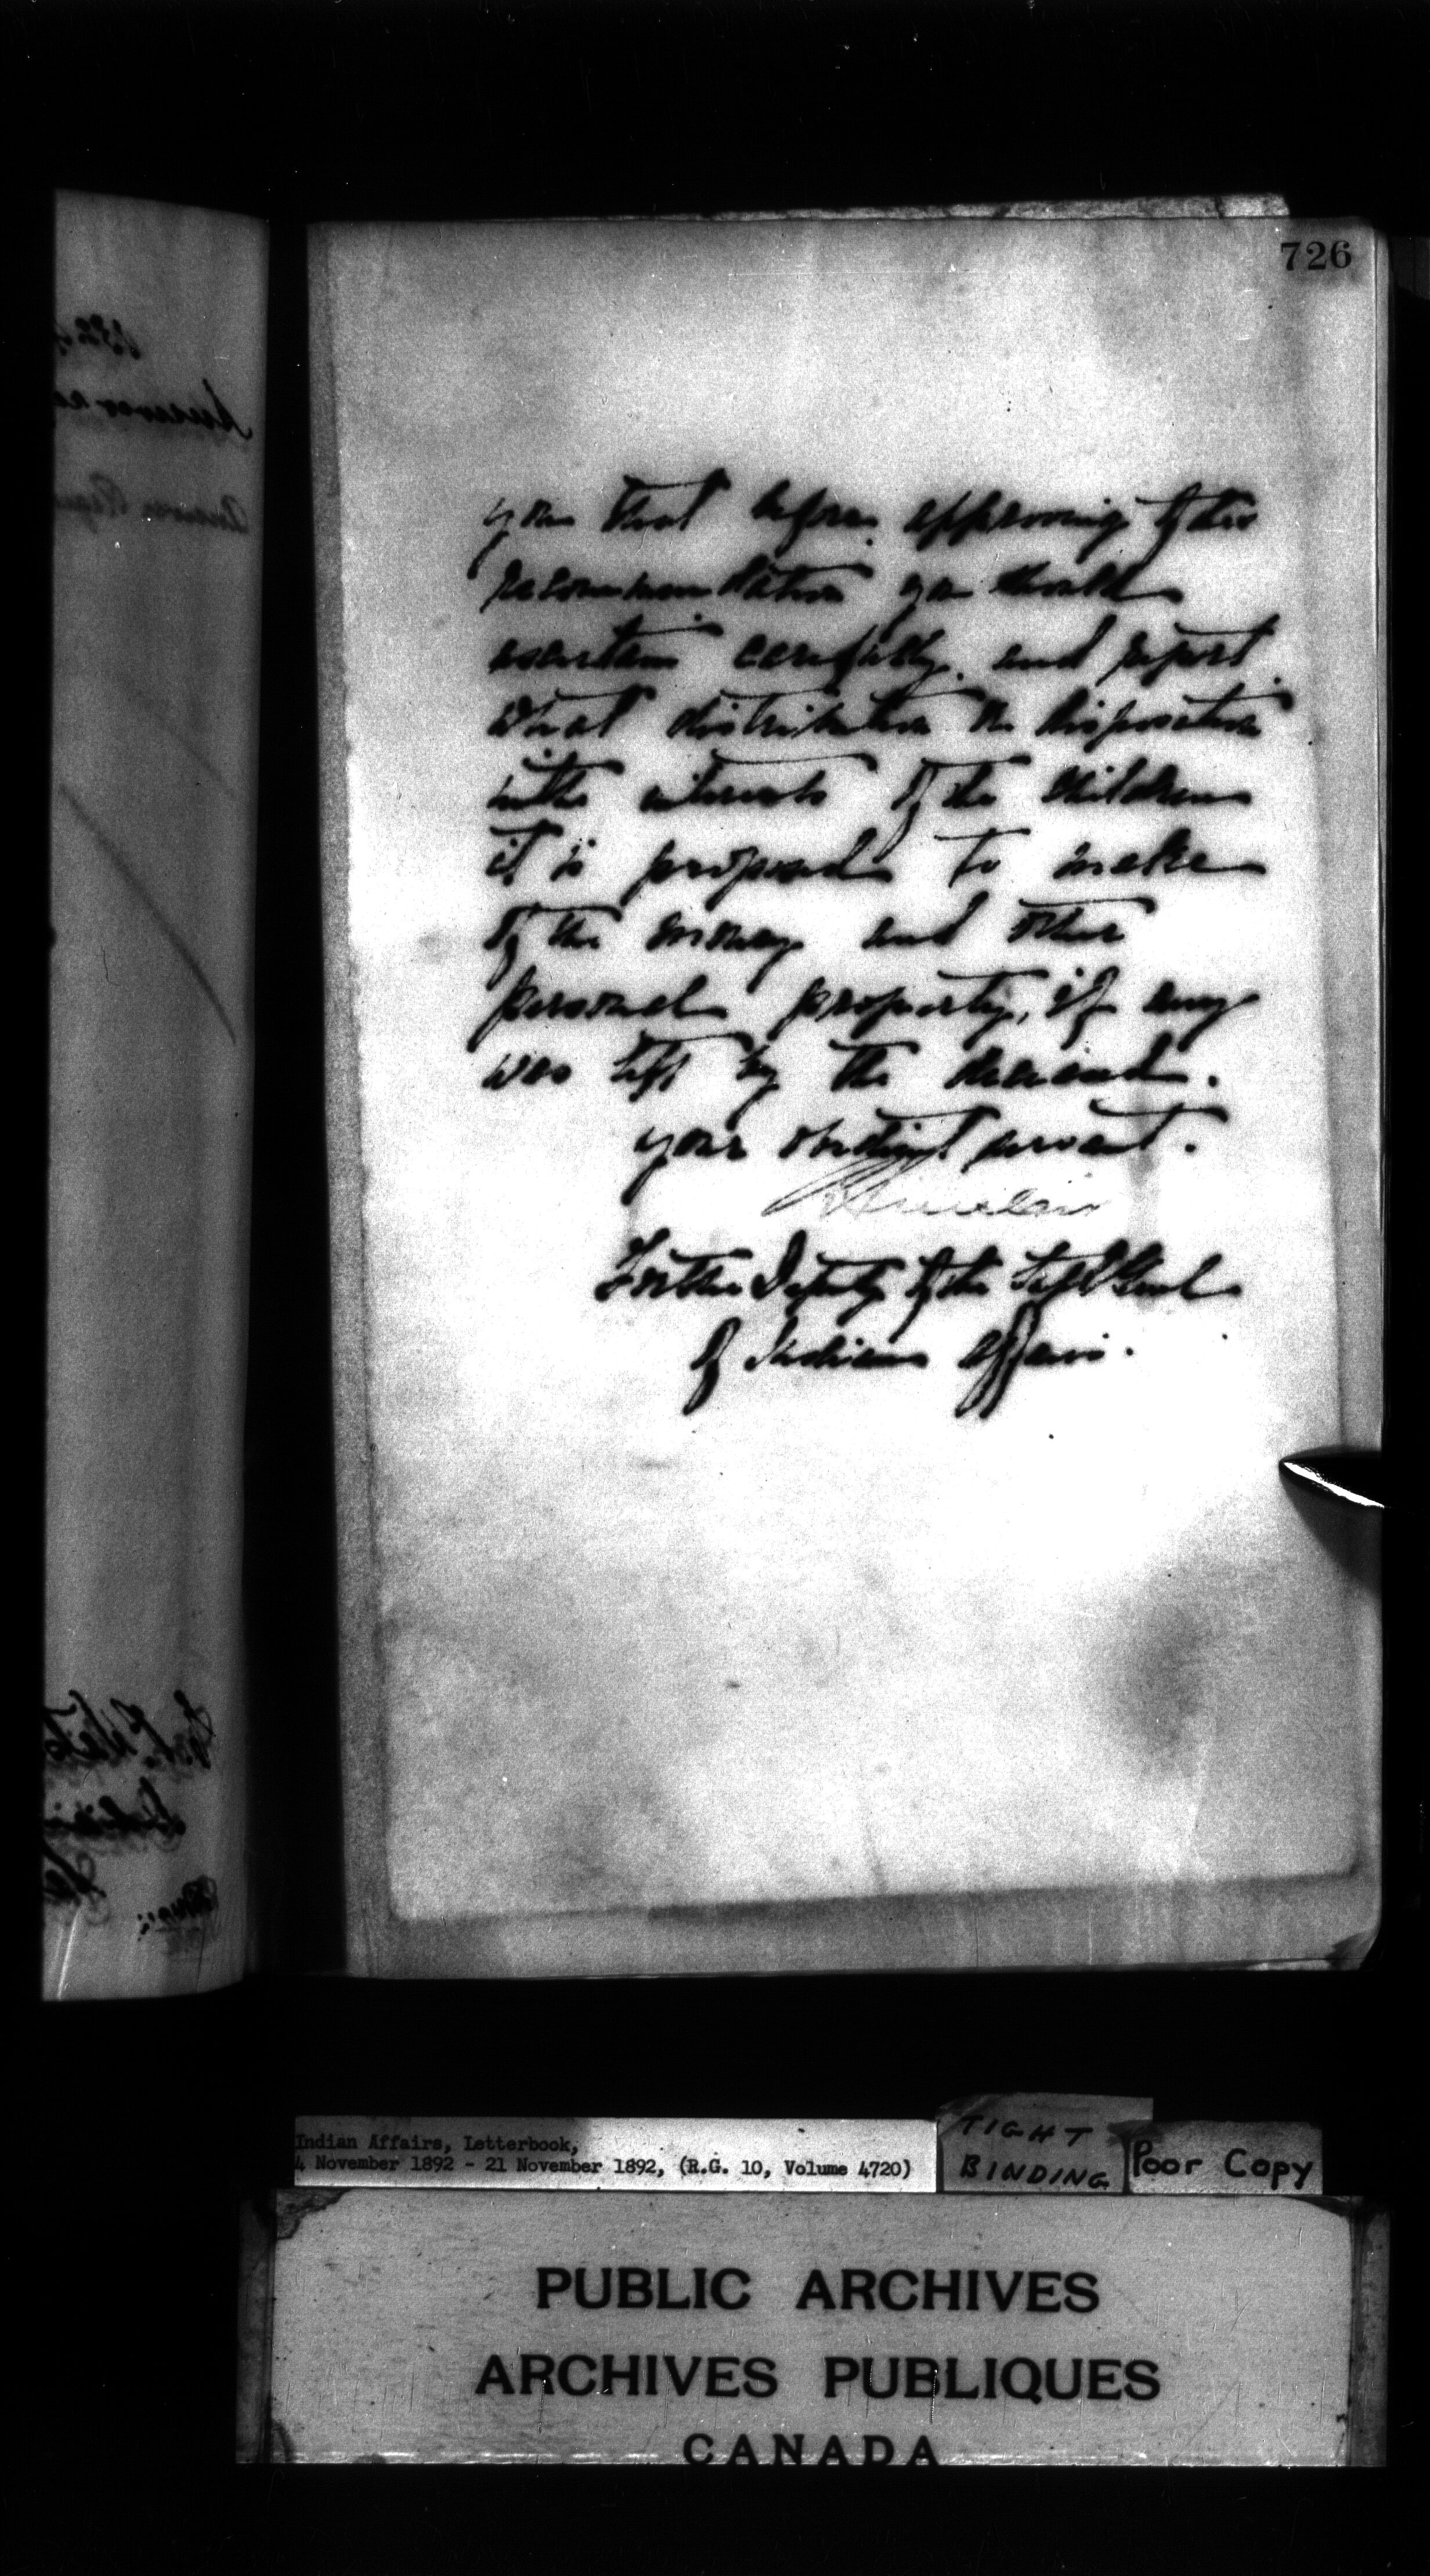 726
you that before approving of this
recommendation you should
ascertain carefully and report
what distribution or disposition
in the interests of the children
it is proposed to make
of the money and other
personal property, if any
was left by the deceased.
your obedient servant.
R Sinclair
For the Deputy of the Supt Genl
of Indian Affairs.
Indian Affairs, Letterbook,
4 November 1892 - 21 November 1892, (R.G. 10, Volume 4720)
TIGHT
BINDING
Poor Copy
PUBLIC ARCHIVES
ARCHIVES PUBLIQUES
CANADA